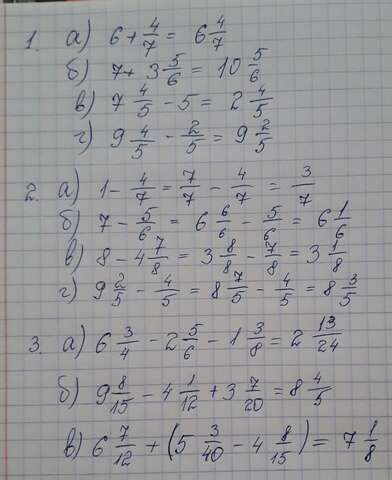 1. а) 6 + 4/7 = 6 4/7
б) 7 + 3 5/6 = 10 5/6
в) 7 4/5 - 5 = 2 4/5
г) 9 4/5 - 2/5 = 9 2/5
2. а) 1 - 4/7 = 7/7 - 4/7 = 3/7
б) 7 - 5/6 = 6 6/6 - 5/6 = 6 1/6
в) 8 - 4 7/8 = 3 8/8 - 7/8 = 3 1/8
г) 9 2/5 - 4/5 = 8 7/5 - 4/5 = 8 3/5
3. а) 6 3/4 - 2 5/6 - 1 3/8 = 2 13/24
б) 9 8/15 - 4 1/12 + 3 7/20 = 8 4/5
в) 6 7/12 + (5 3/40 - 4 8/15) = 7 1/8